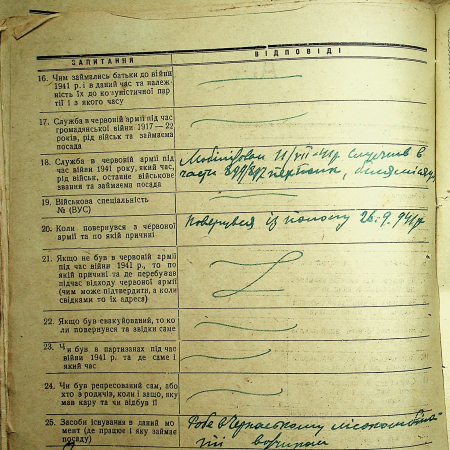 ЗАПИТАННЯ
ВІДПОВІДІ
16. Чим займались батьки до війни
1941 р. і в даний час та належ-
ність їх до комуністичної пар-
тії і з якого часу
17. Служба в червоній армії під час
громадянської війни 1917—22
років, рід військ та займаєма
посада
18. Служба в червоній армії під
час війни 1941 року, який час,
рід військ, останнє військове
звання та займаєма посада
Мобілізован 11/VII-41р служив в
части
19. Військова спеціальність
№ (ВУС)
20. Коли повернувся з червоної
армії та по якій причині
Повернувся із полону 26.9.941р
21. Якщо не був в червоній армії
під час війни 1941 р., то по
якій причині та де перебував
під час відходу червоної армії
(чим може підтвердити, а коли
свідками то їх адреса)
22. Якщо був евакуйований, то ко
ли повернувся та звідки саме
23. Чи був в партизанах під час
війни 1941 р. та де саме і
який час
24. Чи був репресований сам, або
хто з родичів, коли і защо, яку
мав кару та чи відбув її
25. Засоби існування в даний мо
мент (де працює і яку займає
посаду)